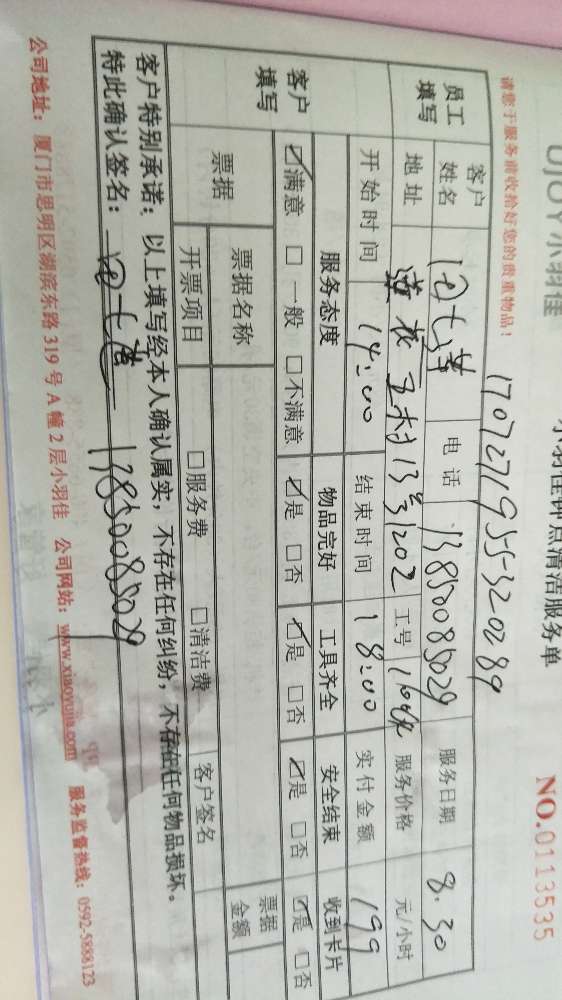 UJOY小羽佳
小羽佳钟点清洁服务单
NO.0113535
请您于服务前收拾好您的贵重物品！
员工填写
客户姓名
电话 13850085029 服务日期 8.30
地址 13号1202 工号 服务价格 元/小时
开始时间 14:00 结束时间 18:00 实付金额 199
客户填写
服务态度 物品完好 工具齐全 安全结束 收到卡片
☑满意 □一般 □不满意 ☑是 □否 ☑是 □否 ☑是 □否 ☑是 □否
票据 票据名称 票据金额
开票项目 □服务费 □清洁费 客户签名
客户特别承诺：以上填写经本人确认属实，不存在任何纠纷，不存在任何物品损坏。
特此确认签名： 13850085029
公司地址：厦门市思明区湖滨东路319号A幢2层小羽佳 公司网站：www.xiaoyujia.com 服务监督热线：0592-5888123